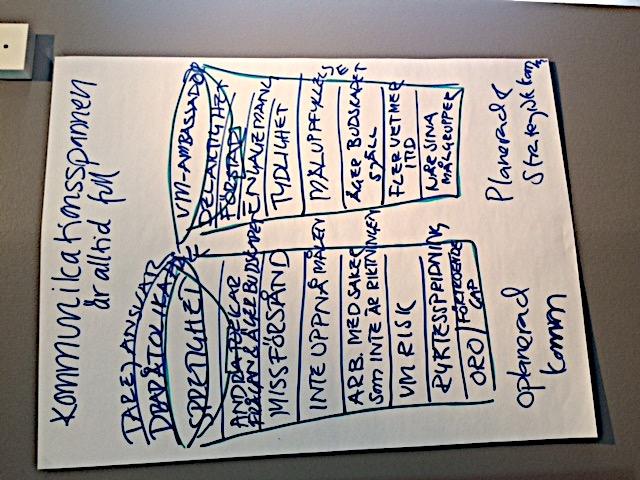 Kommunikationsspannen
är alltid full
TAR EJ ANSVAR
SPRETIGHET
ANDRA TOLKAR
FRÅGAN & ÄGER BUDSKAPET
MISSFÖRSTÅND
INTE UPPNÅ MÅLEN
ARB. MED SAKER
SOM INTE ÄR RIKTNINGEN
VM RISK
RYKTESSPRIDNING
ORO/FÖRTROENDE
GAP
Oplanerad
komm
VM-AMBASSADÖR
DELAKTIGHET
FÖRSTÅR
ENGAGEMANG
TYDLIGHET
MÅLUPPFYLLELSE
ÄGER BUDSKAPET
SJÄLL
FLER VET MER
ITID
NÅR SINA
MÅLGRUPPER
Planerad &
Strategisk kom